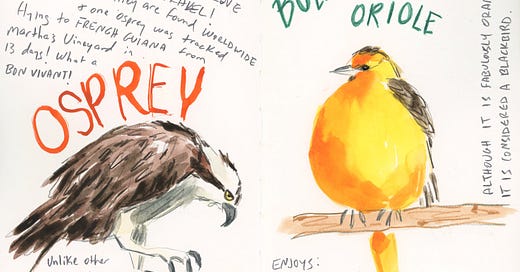 LOVE
TRAVEL!
they are found WORLDWIDE
& one osprey was tracked
flying to FRENCH GUIANA from
Martha's Vineyard in
13 days! What a
BON VIVANT!
OSPREY
Unlike other
ORIOLE
ALTHOUGH IT IS FABULOUSLY
IT IS CONSIDERED A BLACKBIRD.
ENJOYS: